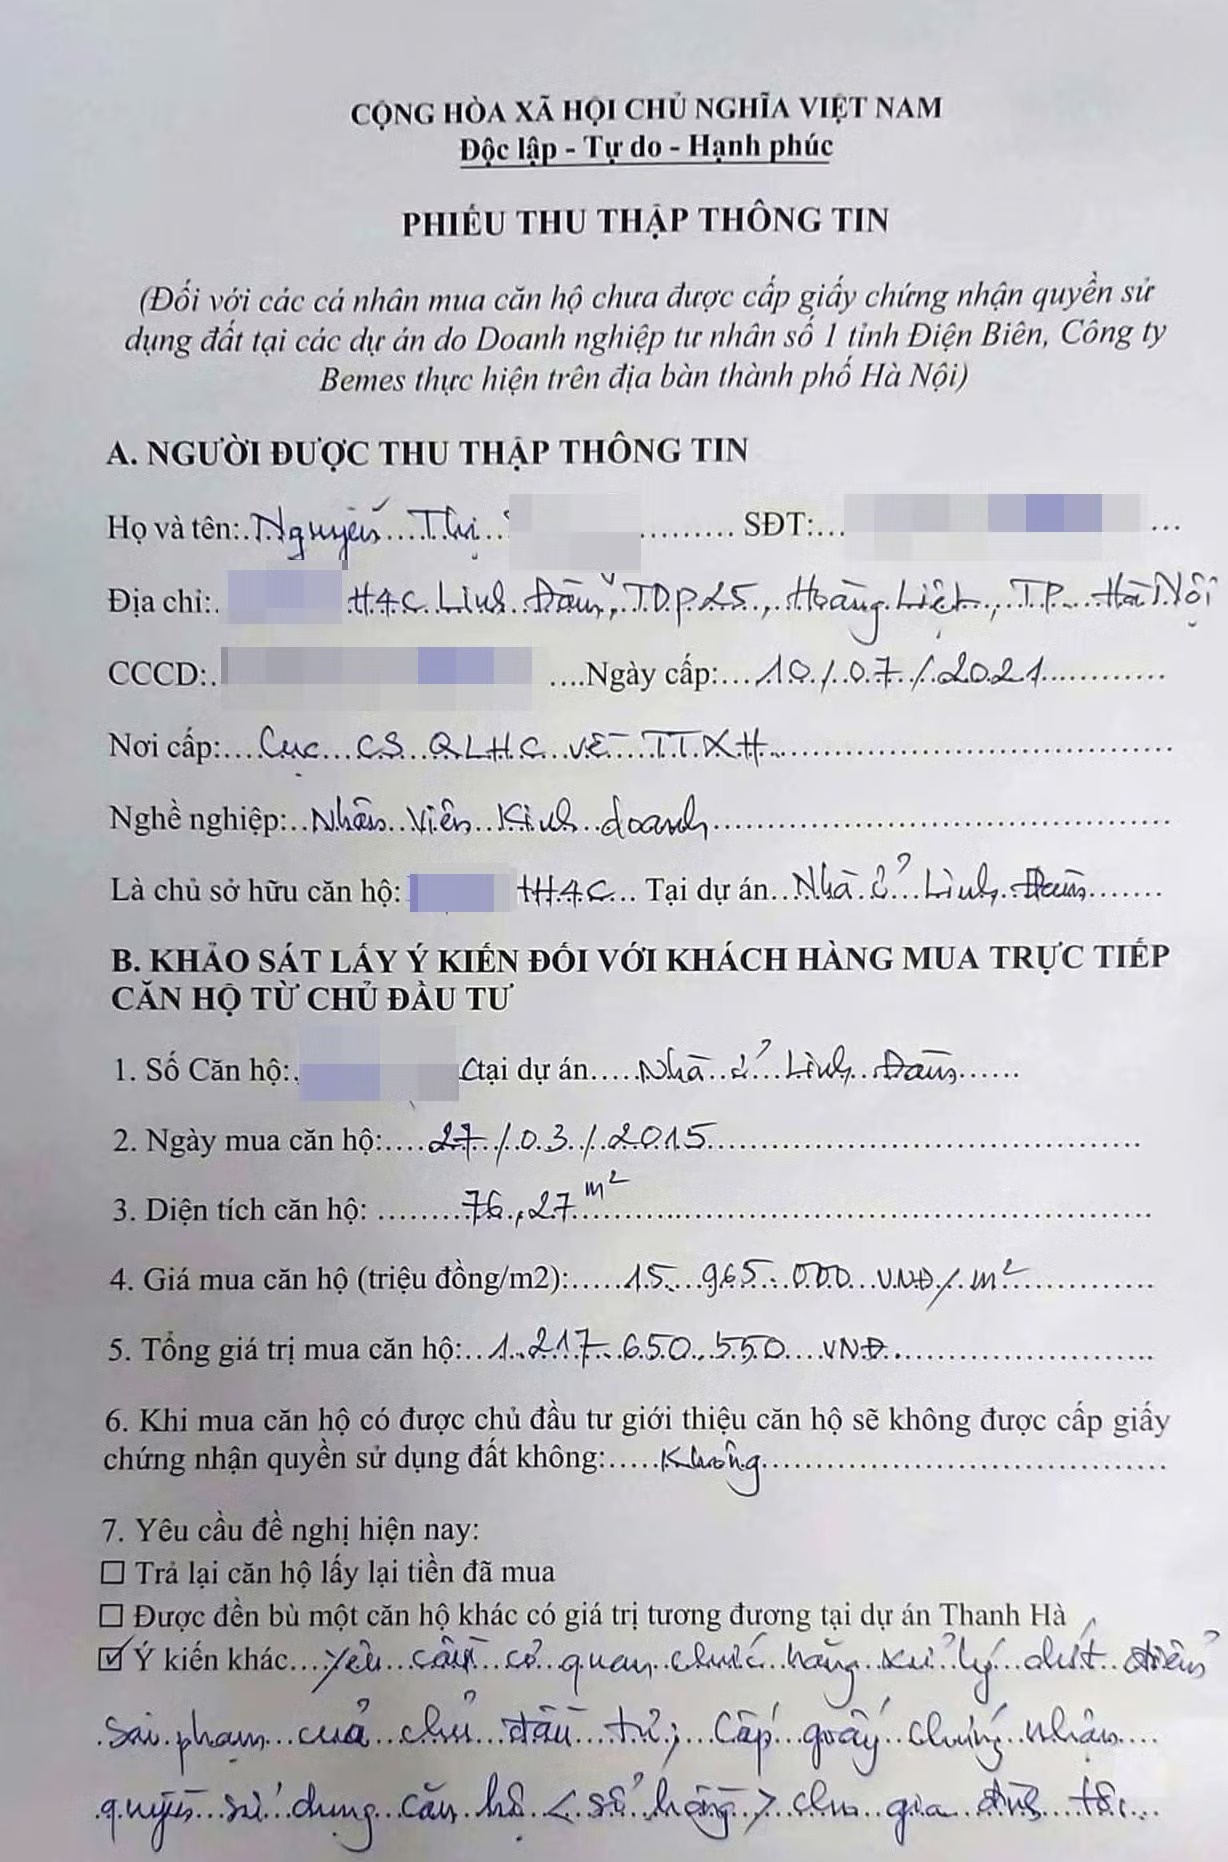 CỘNG HÒA XÃ HỘI CHỦ NGHĨA VIỆT NAM
Độc lập - Tự do - Hạnh phúc
PHIẾU THU THẬP THÔNG TIN
(Đối với các cá nhân mua căn hộ chưa được cấp giấy chứng nhận quyền sử
dụng đất tại các dự án do Doanh nghiệp tư nhân số 1 tỉnh Điện Biên, Công ty
Bemes thực hiện trên địa bàn thành phố Hà Nội)
A. NGƯỜI ĐƯỢC THU THẬP THÔNG TIN
Họ và tên: Nguyễn Thị SĐT:
Địa chỉ: HH4C Linh Đàm, TDP 25, Hoàng Liệt, TP Hà Nội
CCCD: Ngày cấp: 10/07/2021
Nơi cấp: Cục CS QLHC VỀ TTXH
Nghề nghiệp: Nhân viên Kinh doanh
Là chủ sở hữu căn hộ: HH4C Tại dự án Nhà ở Linh Đàm
B. KHẢO SÁT LẤY Ý KIẾN ĐỐI VỚI KHÁCH HÀNG MUA TRỰC TIẾP
CĂN HỘ TỪ CHỦ ĐẦU TƯ
1. Số Căn hộ: C tại dự án Nhà ở Linh Đàm
2. Ngày mua căn hộ: 27/03/2015
3. Diện tích căn hộ: 76,27 m²
4. Giá mua căn hộ (triệu đồng/m2): 15.965.000 VNĐ/m²
5. Tổng giá trị mua căn hộ: 1.217.650.550 VNĐ
6. Khi mua căn hộ có được chủ đầu tư giới thiệu căn hộ sẽ không được cấp giấy
chứng nhận quyền sử dụng đất không: Không
7. Yêu cầu đề nghị hiện nay:
☐ Trả lại căn hộ lấy lại tiền đã mua
☐ Được đền bù một căn hộ khác có giá trị tương đương tại dự án Thanh Hà
☑ Ý kiến khác yêu cầu cơ quan chức năng xử lý dứt điểm
sai phạm của chủ đầu tư; Cấp giấy chứng nhận
quyền sử dụng căn hộ <sổ hồng> cho gia đình tôi